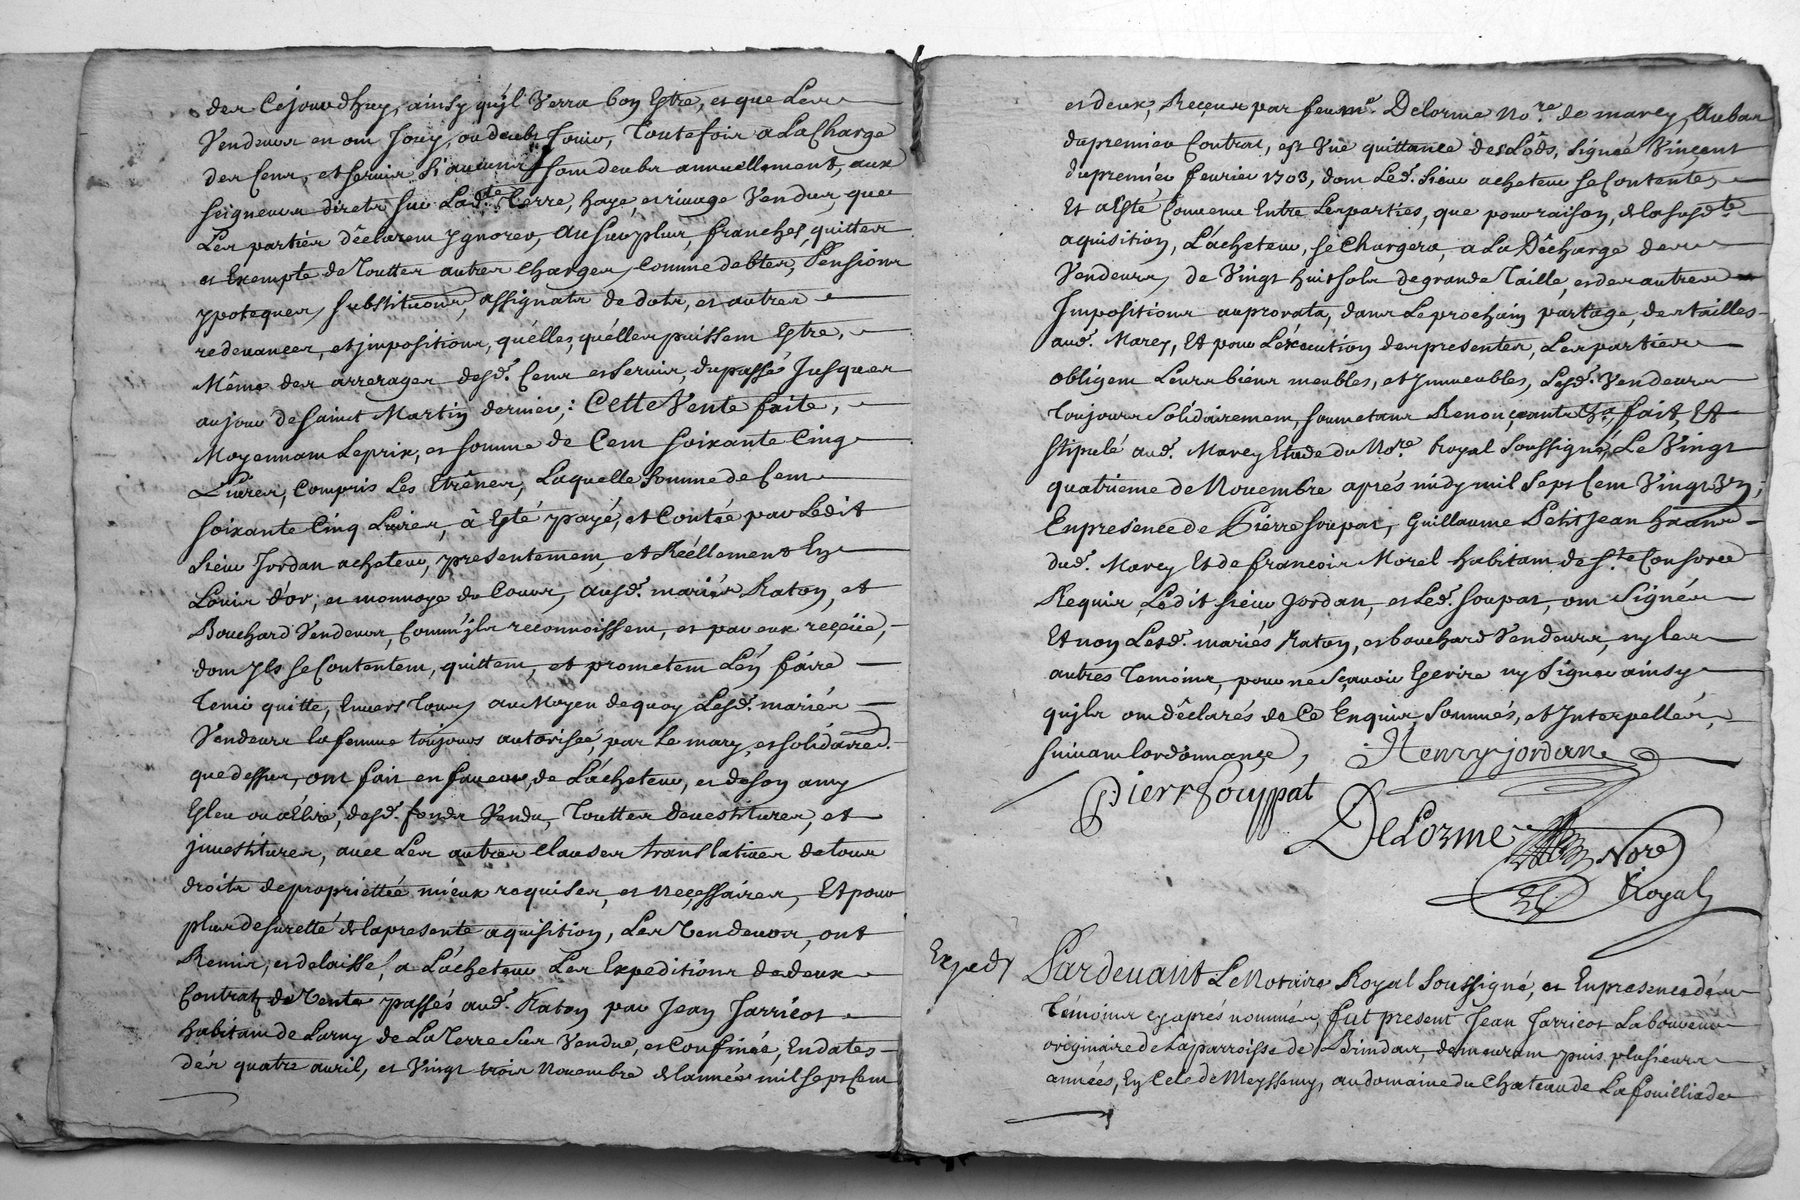 der Cejourdhuy, ainsy quyl Verra bon Estre, et que Les
Vendeurs en ont Jouy, ou deubt Jouir, Toutefois a La Charge
des Cens, et servis si aucuns sont deubs annuellement, aux
seigneurs directs sur Lad.te Terre, haye, et rivage Vendus, que
Les parties déclarent Ignorer, Au surplus, franches, quittes
et Exempte de Touttes autres Charges, Comme debtes, Pensions
ypoteques, substitutions, assignats de dots, et autres
redevances, et jmpositions, quélles, quélles puissent Estre,
Même des arrerages desd. Cens et servis, du passé Jusques
au jour de saint Martin dernier; Cette Vente faite,
Moyennant Le prix, et somme de Cent soixante Cinq
Livres, Compris Les Etrênes, Laquelle somme de Cent
soixante Cinq Livres, â Esté payé, et Contée par Ledit
sieur Jordan acheteur, presentement, et Réellement En
Louis d'or, et monnoye du Cours, ausd. mariés Raton, et
Bouchard Vendeurs, Comm'jls reconnoissent, et par eux reçeüe,
dont Ils se Contentent, quittent, et prometent L'en faire
Tenir quitte, Envers Tous, au Moyen de quoy Lesd. mariés
Vendeurs la femme toujours autorisée, par Le mary, et solidaires.
que dessus, ont fait en faveur, de L'acheteur, et de son amy
Esleu ou a Elire, desd. fonds Vendu, Touttes devestitures, et
jnvestitures, avec Les autres Clauses translatives de tous
droits de proprietteé mieux requises, et neçessaires, Et pour
plus de suretté de la presente aquisition, Les Vendeurs, ont
Remis, et delaissé, a L'acheteur Les Expeditions de deux
Contrats de Vente passés aud. Raton par Jean Jarricot
habitant de Larny de La Terre sus Vendue, et Confinée, En dates
dés quatre avril, et Vingt trois Novembre de l'année mil sept Cent
et deux, Reçeus par feu m.e Delorme No.re de marcy, Au bas
du premier Contrat, est Vne quittance des Lôds, signée Vincent
du premiér fevrier 1703, dont Led. sieur acheteur se Contente,
Et a Esté Convenu Entre Les parties, que pour raison, de la susd.te
aquisition, L'acheteur, se Chargera, a La Décharge des
Vendeurs, de Vingt huit sols de grande Taille, et des autres
Impositions au prorata, dans Le prochain partage, des tailles
aud. Marcy, Et pour L'éxecution des presentes, Les parties
obligent Leurs biens meubles, et jmmeubles, Lesd. Vendeurs
Toujours Solidairement, soumetans Renonçeants &a fait, Et
stipulé aud. Marcy Etude du No.re Royal Soussigné, Le Vingt
quatrieme de Novembre aprés midy mil Sept Cent Vingt Vn;
En presence de Pierre soupat, Guillaume Petit Jean
dud. Marcy Et de francois Morel habitant de S.te Consorce
Requis, Ledit sieur Jordan, et Led. soupat, ont Signés
Et non Lesd. mariés Raton, et bouchard Vendeurs, ny Les
autres Temoins, pour ne Sçavoir Escrire ny Signer ainsy
qu'jls ont déclarés de Ce Enquis Sommés, et Interpellés,
suivant l'ordonnançe, Henry jordan
pierr Souppat
DeLorme Nore
Royal
Exped.
Pardevant Le Notaire Royal Soussigné, et En presence des
Témoins cy aprés nommés, fut present Jean Jarricot Laboureur
originaire de La parroisse de Brindas, demeurant puis plusieurs
années, En Cele de Meyssemy, au domaine du Chateau de La fouilliade